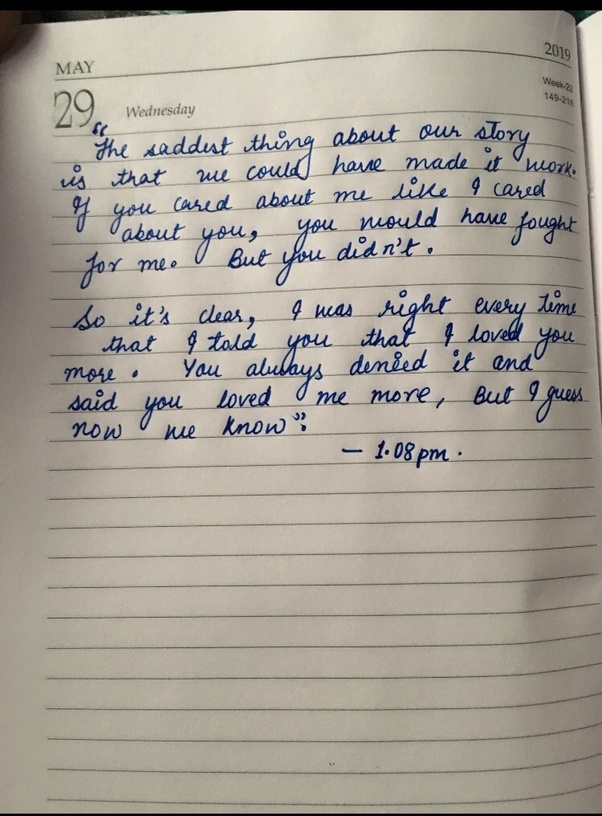 MAY 2019
29 Wednesday Week-22
149-216
"The saddest thing about our story
is that we could have made it work.
If you cared about me like I cared
about you, you would have fought
for me. But you didn't.
So it's clear, I was right every time
that I told you that I loved you
more. You always denied it and
said you loved me more, But I guess
now we know":
— 1.08pm.